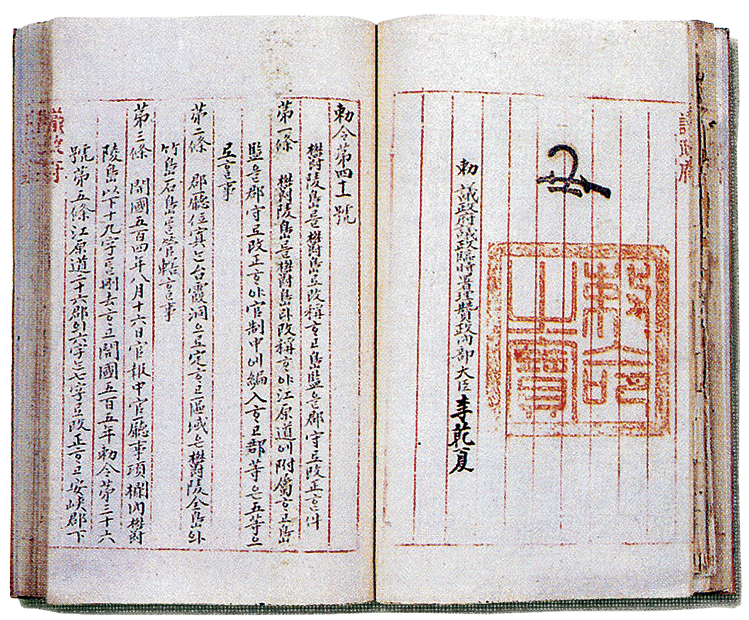 議政府
勅命之寶
勅 議政府議政臨時署理贊政內部大臣 李乾夏
勅令第四十一號
欝陵島를欝島로改稱ᄒᆞ고島監을郡守로改正ᄒᆞᆫ件
第一條 欝陵島를欝島라改稱ᄒᆞ야江原道에附屬ᄒᆞ고島
監을郡守로改正ᄒᆞ야官制中에編入ᄒᆞ고郡等은五等으
로ᄒᆞᆯ事
第二條 郡廳位寘ᄂᆞᆫ台霞洞으로定ᄒᆞ고區域은欝陵全島와
竹島石島를管轄ᄒᆞᆯ事
第三條 開國五百四年八月十六日官報中官廳事項欄內欝
陵島以下十九字를刪去ᄒᆞ고開國五百五年勅令第三十六
號第五條江原道二十六郡의六字ᄂᆞᆫ七字로改正ᄒᆞ고安峽郡下
議政府